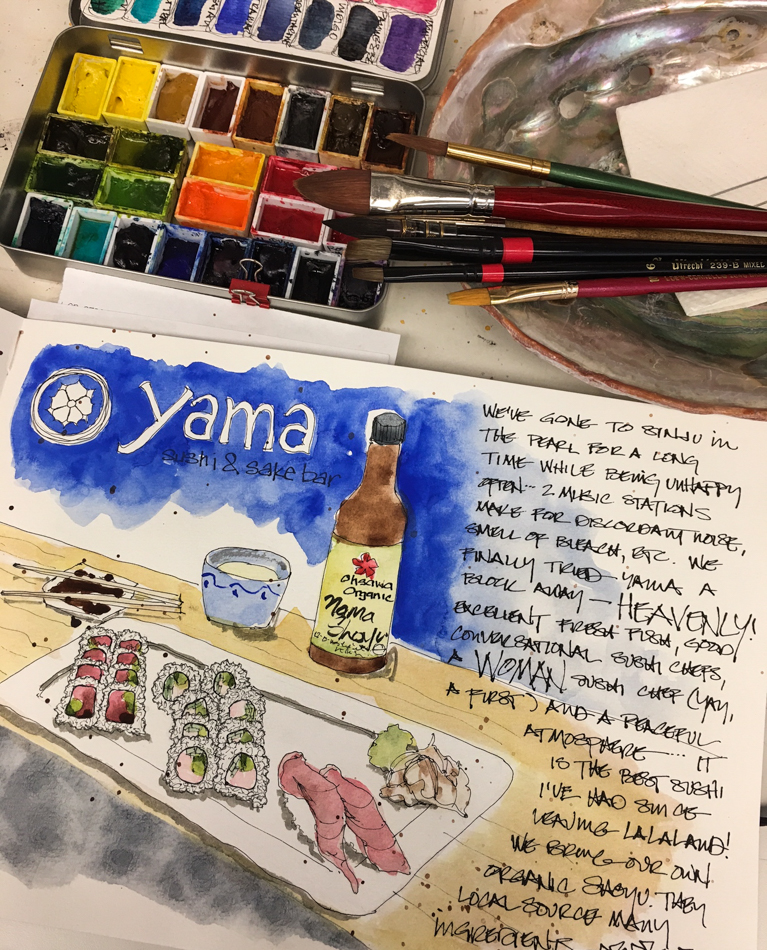 6 Utrecht 239-B MIXE
yama
sushi & sake bar
Ohsawa
Organic
Nama
Shoyu
WE'VE GONE TO SINJU IN
THE PEARL FOR A LONG
TIME WHILE BEING UNHAPPY
OFTEN... 2 MUSIC STATIONS
MAKE FOR DISCORDANT NOISE,
SMELL OF BLEACH, ETC. WE
FINALLY TRIED YAMA A
BLOCK AWAY — HEAVENLY!
EXCELLENT FRESH FISH, GOOD
CONVERSATIONAL SUSHI CHEFS,
A WOMAN SUSHI CHEF (YAY,
A FIRST) AND A PEACEFUL
ATMOSPHERE.... IT
IS THE BEST SUSHI
I'VE HAD SINCE
LEAVING LALALAND!
WE BRING OUR OWN
ORGANIC SHOYU. THEY
LOCAL SOURCE MANY
INGREDIENTS